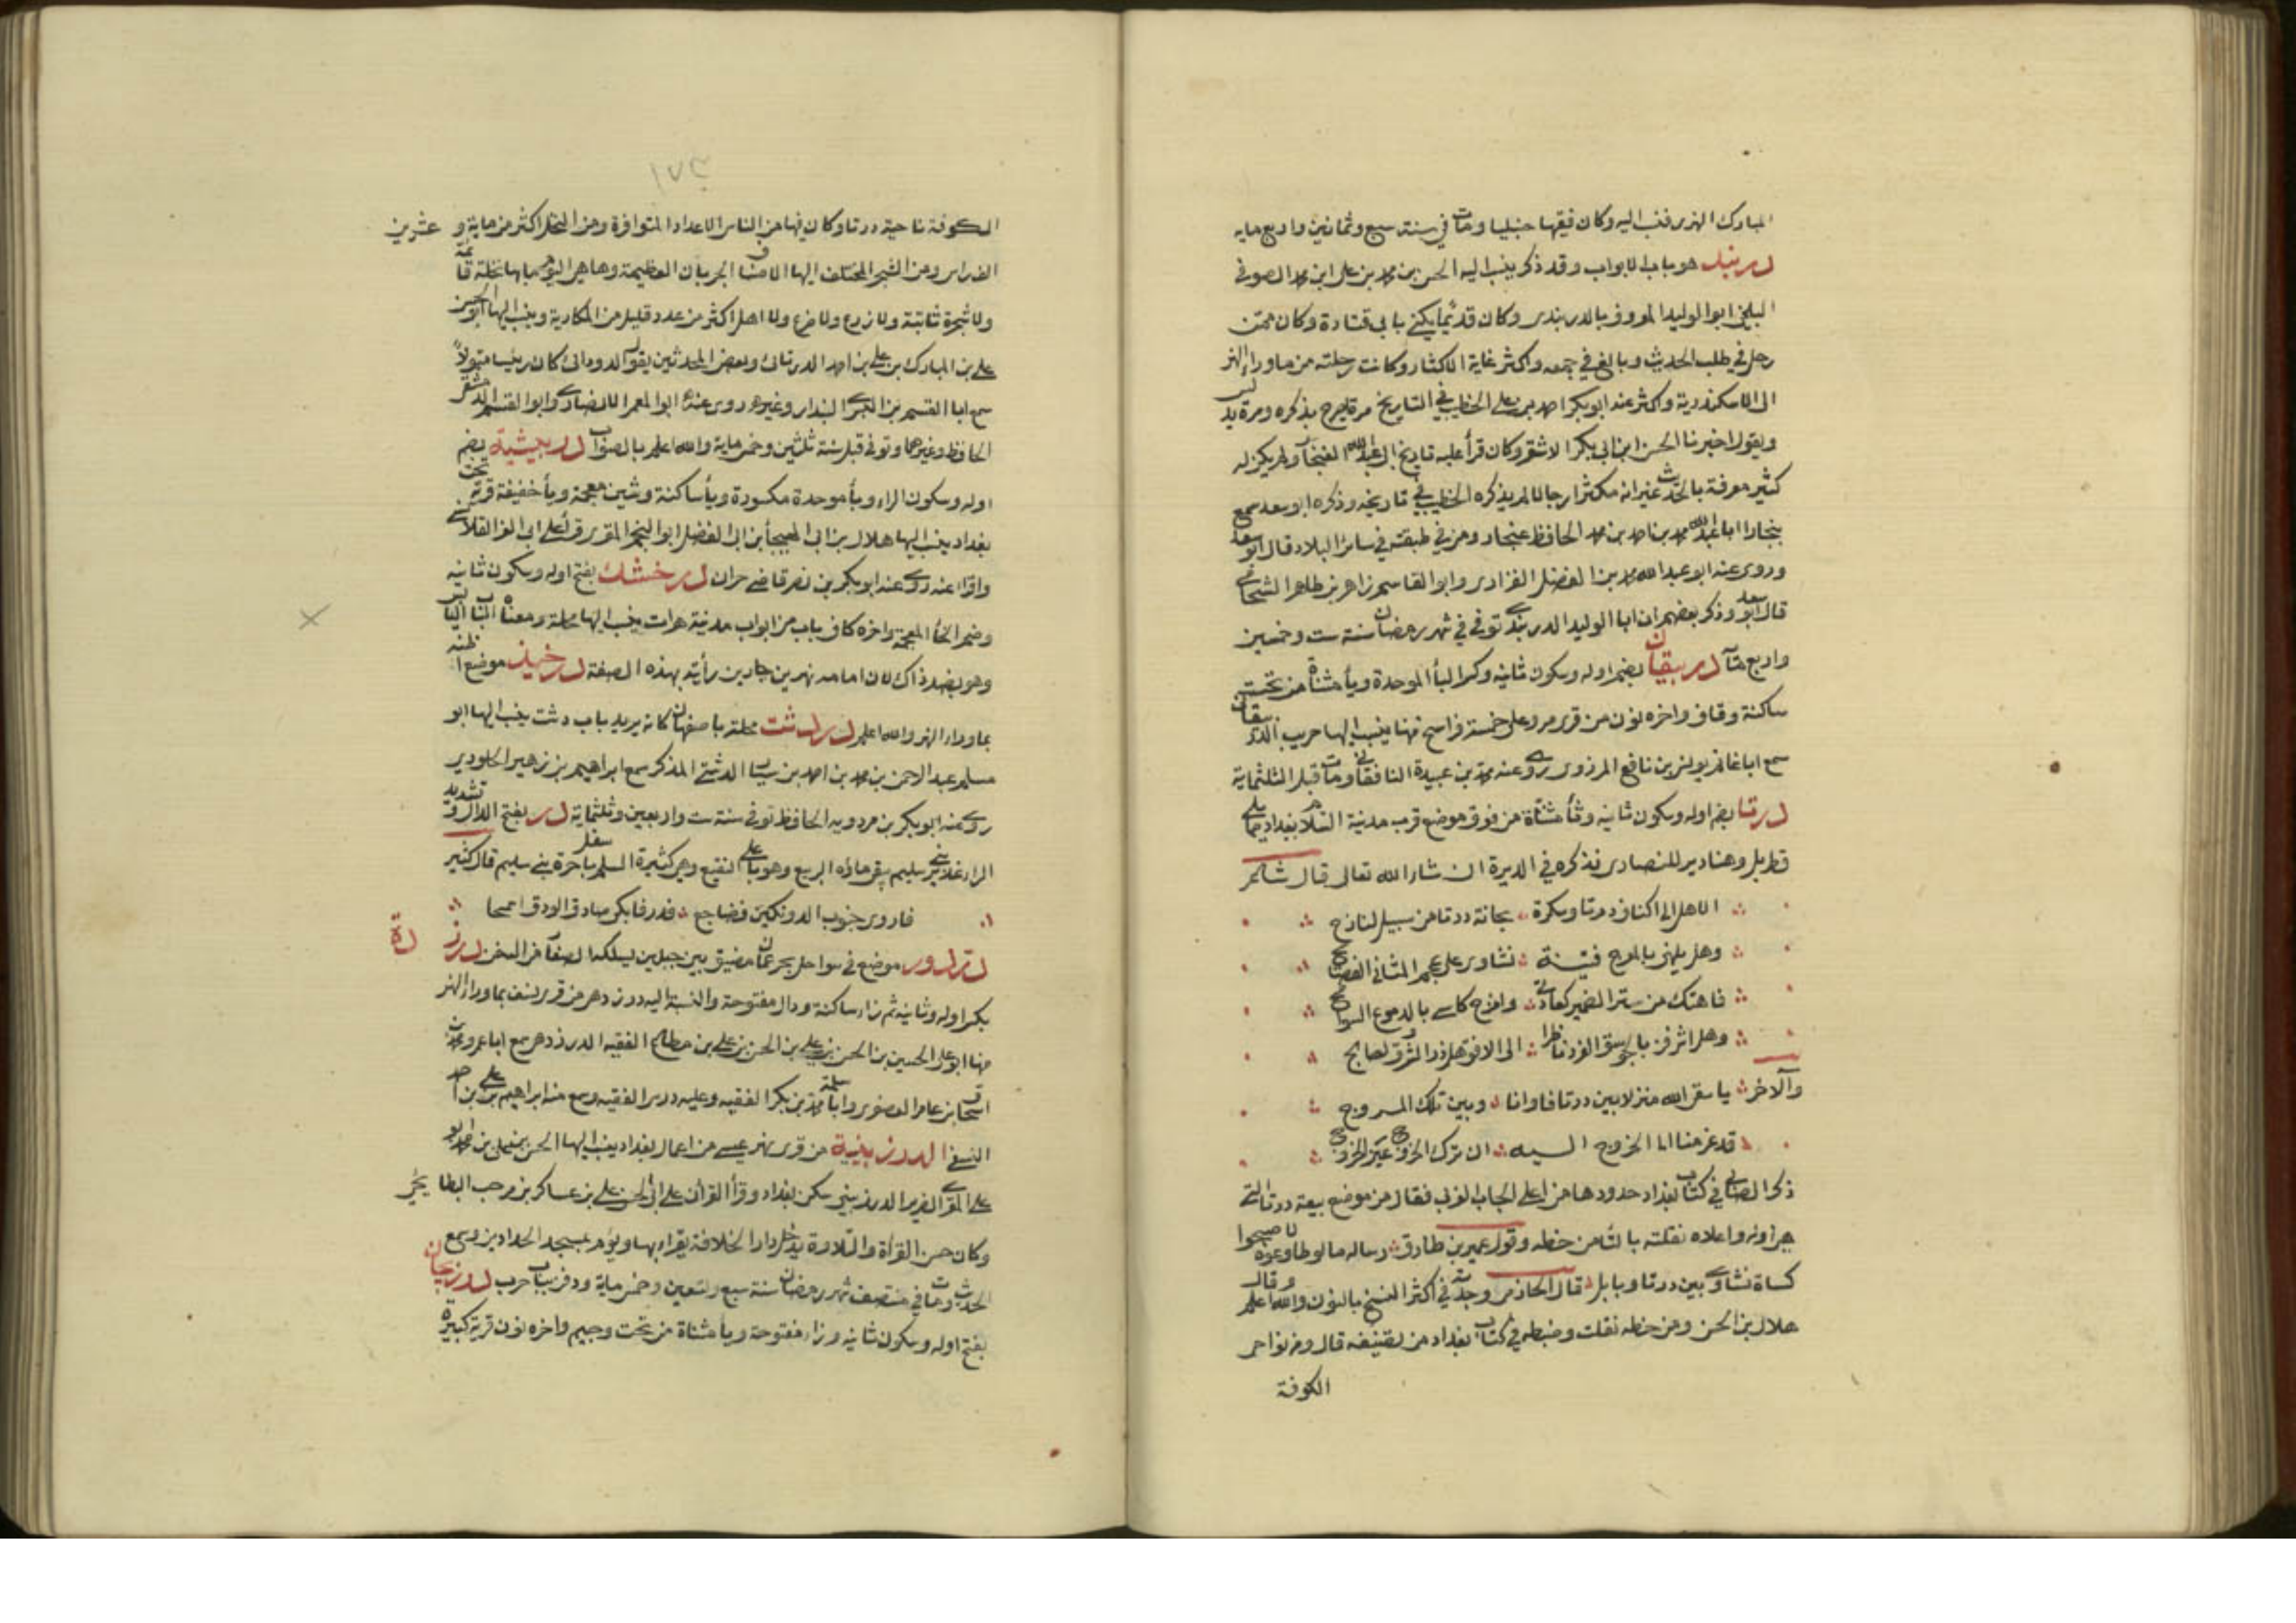 المبارك النهرى فنسب اليه وكان فقيها حنبليا ومات في سنة سبع وثمانين واربع مايه
دربند هو باب الابواب وقد ذكر ينسب اليه الحسن بن محمد بن على ابن محمد الصوفى
البلخى ابو الوليد المعروف بالدربندى وكان قديما يكنى بابى قتادة وكان ممن
رحل في طلب الحديث وبالغ في جمعه واكثر غاية الاكثار وكانت رحلته من ماوراء النهر
الى الاسكندرية واكثر عنه ابو بكر احمد بن على الخطيب في التاريخ مرة يصرح بذكره ومرة يدلس
ويقول اخبرنا الحسن ابن ابى بكر الاشقر وكان قرأ عليه تاريخ ابى عبد الله الغنجار ولم يكن له
كثير معرفة بالحديث غير انه مكثر ارجالا لم يذكره الخطيب في تاريخه وذكره ابو سعد سمع
ببخارا ابا عبد الله محمد بن احمد بن محمد الحافظ غنجار ومن في طبقته في ساير البلاد قال ابو سعد
وروى عنه ابو عبد الله محمد بن الفضل الفراوى وابو القاسم زاهر بن طاهر الشحامى
قال ابو سعد وذكر بعضهم ان ابا الوليد الدربندى توفي في شهر رمضان سنة ست وخمسين
واربع مائة دربيقان بضم اوله وسكون ثانيه وكسر الباء الموحدة وياء مثناة من تحت
ساكنة وقاف واخره نون من قرى مرو على خمسة فراسخ منها ينسب اليها حريب الدربيقانى
سمع ابا غانم يونس بن نافع المروزى روى عنه محمد بن عبيدة النافقانى ومات قبل الثلثماية
درتا بضم اوله وسكون ثانيه وتاء مثناة من فوق موضع قرب مدينة السلام بغداد مما يلى
قطربل وهنا دير للنصارى نذكره في الديرة ان شاء الله تعالى قال شاعر
الا هل الى اكناف درتا وسكرة بحانة درتا من سبيل لنازح
وهل يلهينى بالمرج فتية نشاوى على عجم المثانى الفصائح
فاهتك من ستر الضمير كعادتى وامزج كاسى بالدموع السوافح
وهل اشرفن بالجوسق الفرد ناظرا الى الافق هل ذر الشروق لصابح
والآخر يا سقى الله منزلا بين درتا فاوانا وبين تلك المروج
قد عزمنا اما الخروج اليه ان ترك الخروج عين الخروج
ذكر الصابى في كتاب بغداد حدودها من اعلى الجانب الغربى فقال من موضع بيعة درتا التى
هى اوله واعلاه نقلته بالثا من خطه وقول عميرة بن طارق رساله مالو طاوعوه لاصبحوا
كساة نشاوى بين درتا وبابل قال الحازمى وجدته في اكثر النسخ بالنون والله اعلم وقال
هلال بن الحسن ومن خطه نقلت وضبطه في كتاب بغداد من تصنيفه قال ومن نواحى
الكوفة
١٧٣
الكوفة ناحية درتا وكان فيها من الناس الاعداد المتوافرة ومن النخل اكثر من ماية وعشرين
الف راس ومن الشجر المختلف اليها الاصناف الجربان العظيمة وها هى اليوم ما بها نخلة قائمة
ولا شجرة ثابتة ولا زرع ولا ضرع ولا اهل اكثر من عدد قليل من المكارية وينسب اليها ابو الحسن
على بن المبارك بن على بن احمد الدرتائى وبعض المحدثين يقول الدردائى كان رئيسا متمولا
سمع ابا القسم بن البسرى البندار وغيره روى عنه ابو المعمر الانصارى وابو القسم الدمشقى
الحافظ وغيرهما وتوفى قبل سنة ثلثين وخمس ماية والله اعلم بالصواب دربيشية بضم
اوله وسكون الراء وباء موحدة مكسورة وياء ساكنة وشين معجمة وياء خفيفة قرية تحت
بغداد ينسب اليها هلال بن ابى الهيجاء بن ابى الفضل ابو النجم المقرى قرأ على ابى العز القلانسى
واقرا عنه روى عنه ابو بكر بن نصر قاضى حران درخشك بفتح اوله وسكون ثانيه
وضم الخاء المعجمة واخره كاف باب من ابواب مدينة هرات ينسب اليها محلة ومعناه الباب اليابس
وهو بضد ذاك لان امامه نهرين جاريين رأيته بهذه الصفة درخيد موضع اظنه
بماوراء النهر والله اعلم دردشت محلة باصفهان كانه يريد باب دشت ينسب اليها ابو
مسلم عبد الرحمن بن محمد بن احمد بن سياه الدشتى المذكر سمع ابراهيم بن زهير الحلوانى
روى عنه ابو بكر بن مردويه الحافظ توفى سنة ست واربعين وثلثماية در بفتح الدال وتشديد
الراء غدير بنى سليم يبقى ماؤه الربيع وهو باعلى النقيع وهى كثيرة السلم باسفل حرة بنى سليم قال كثير
فاروى جنوب الدونكين فضاجع فدر فابكى صادق الودق اسحما
دردور موضع في سواحل بحر عمان مضيق بين جبلين يسلكه الصغار من السفن درزده
بكسر اوله وثانيه ثم زاء ساكنة ودال مفتوحة والنسبة اليه درزدهى من قرى نسف بماوراء النهر
منها ابو على الحسين بن الحسن بن على بن الحسن بن على بن مطاع الفقيه الدرزدهى سمع ابا عمرو محمد بن
اسحاق بن عامر العصفرى وابا سلمة محمد بن بكر الفقيه وعليه درس الفقيه وسمع منه ابراهيم بن على بن احمد
النسفى الدرزبينية من قرى نهر عيسى من اعمال بغداد ينسب اليها الحسن بن على بن محمد ابو
على المقرى الضرير الدرزبينى سكن بغداد وقرأ القرأن على ابى الحسن على بن عساكر بن مرحب البطايحى
وكان حسن القرأة والتلاوة يدخل دار الخلافة يقرا بها ويؤم بمسجد الحدادين وسمع
الحديث ومات في منتصف شهر رمضان سنة سبع وتسعين وخمس ماية ودفن بباب حرب درزيجان
بفتح اوله وسكون ثانيه وزاء مفتوحة وياء مثناة من تحت وجيم واخره نون قرية كبيرة